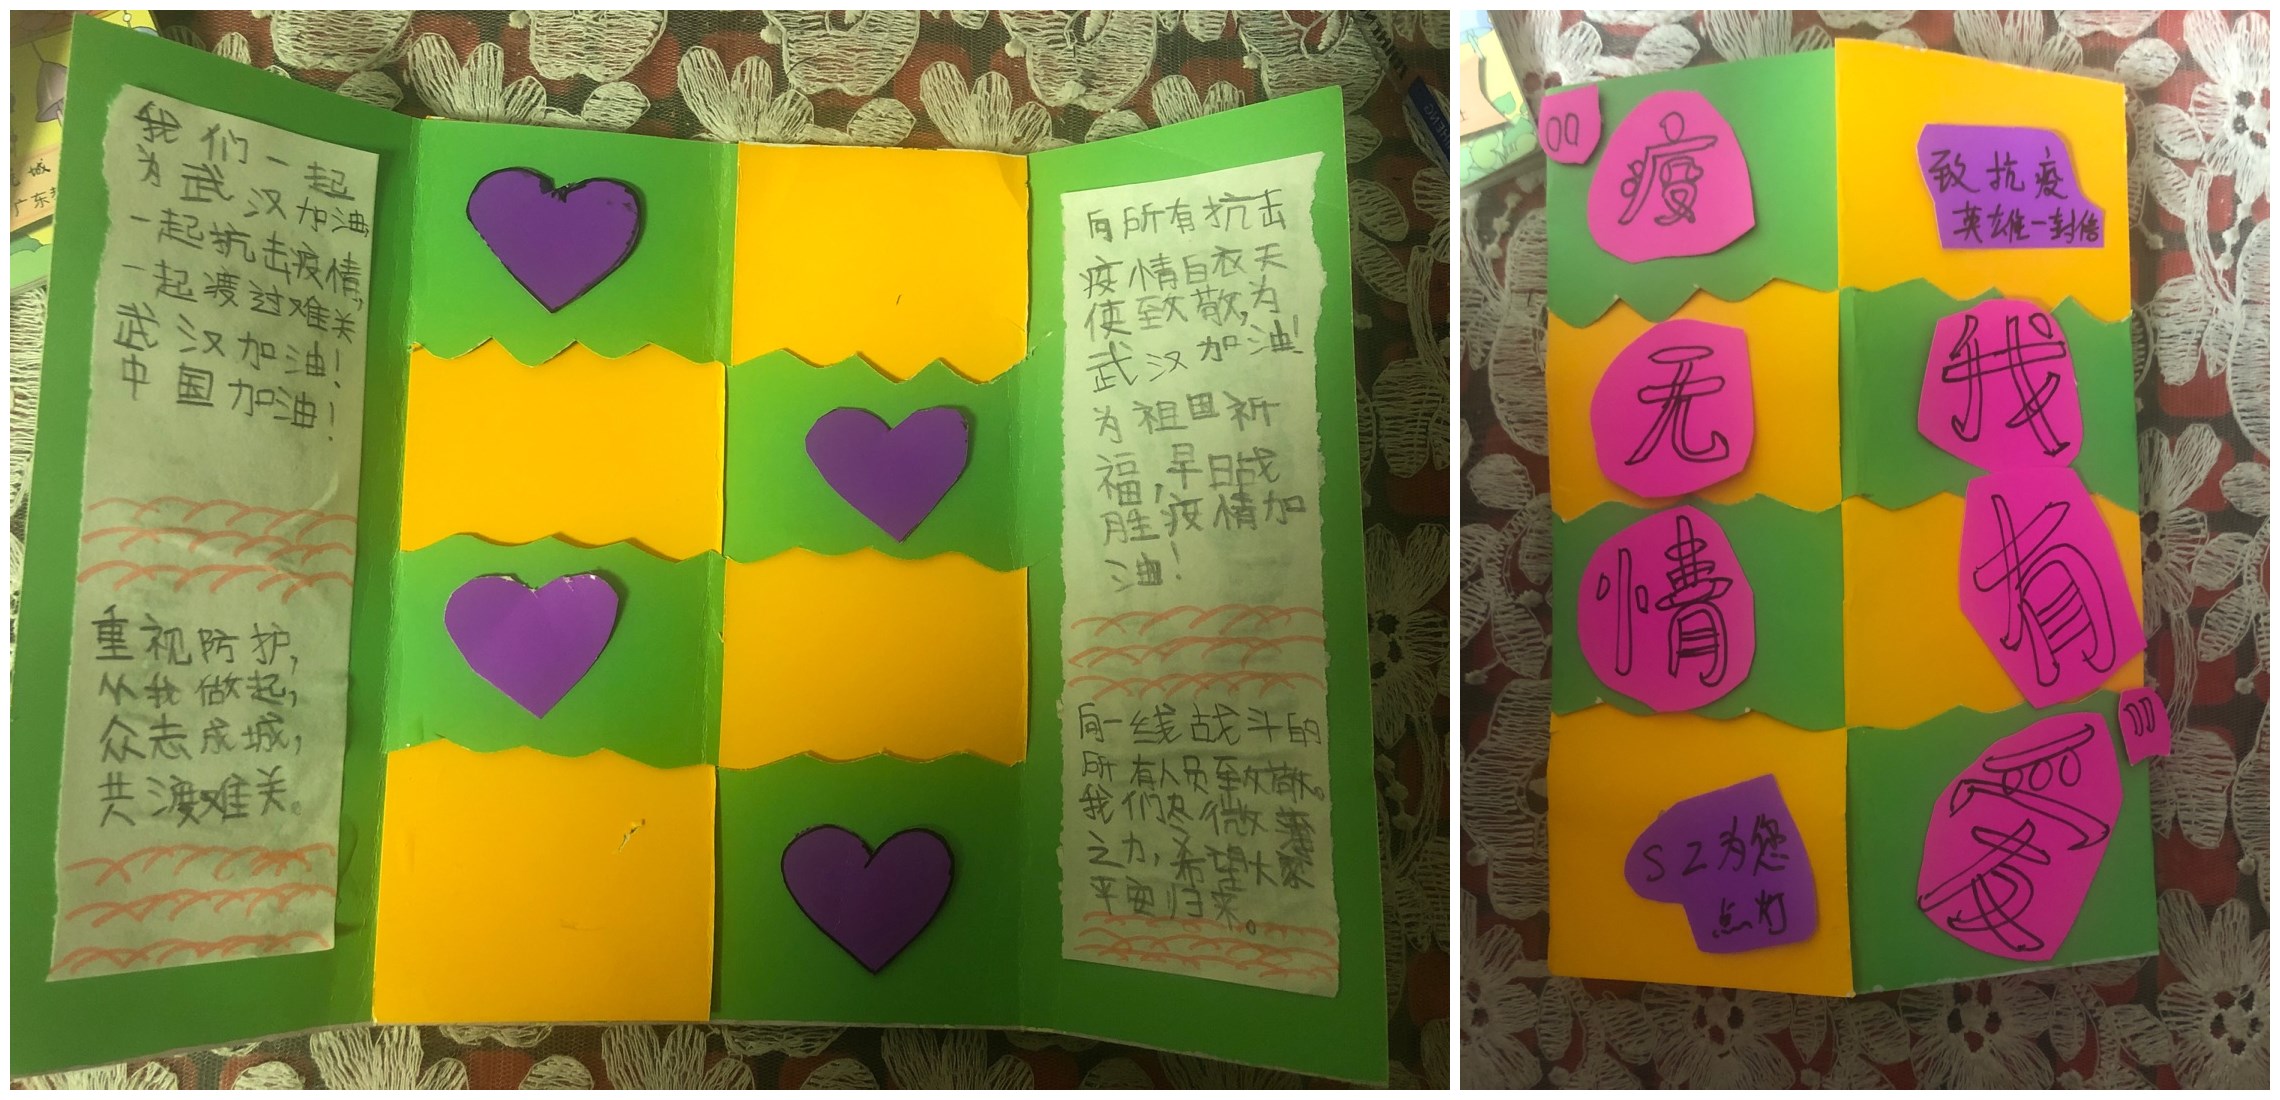 我们一起
为武汉加油,
一起抗击疫情,
一起渡过难关
武汉加油!
中国加油!
重视防护,
从我做起,
众志成城,
共渡难关。
向所有抗击
疫情白衣天
使致敬,为
武汉加油!
为祖国祈
福,早日战
胜疫情加
油!
向一线战斗的
所有人员致敬。
我们尽微薄
之力,希望大家
平安归来。
“疫
无
情
SZ为您
点灯
致抗疫
英雄一封信
我
有
爱”